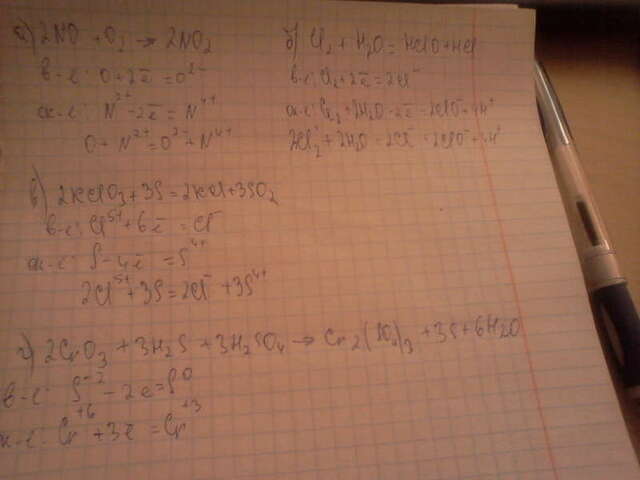 а) 2NO + O₂ → 2NO₂
в-е: O + 2ē = O²⁻
ок-е: N²⁺ - 2ē = N⁴⁺
O + N²⁺ = O²⁻ + N⁴⁺
б) Cl₂ + H₂O = HClO + HCl
в-е: Cl₂ + 2ē = 2Cl⁻
ок-е: Cl₂ + 2H₂O - 2ē = 2ClO⁻ + 4H⁺
2Cl₂ + 2H₂O = 2Cl⁻ + 2ClO⁻ + 4H⁺
в) 2KClO₃ + 3S = 2KCl + 3SO₂
в-е: Cl⁵⁺ + 6ē = Cl⁻
ок-е: S - 4ē = S⁴⁺
2Cl⁵⁺ + 3S = 2Cl⁻ + 3S⁴⁺
г) 2CrO₃ + 3H₂S + 3H₂SO₄ → Cr₂(SO₄)₃ + 3S + 6H₂O
в-е: S⁻² - 2e = S⁰
ок-е: Cr⁺⁶ + 3ē = Cr⁺³